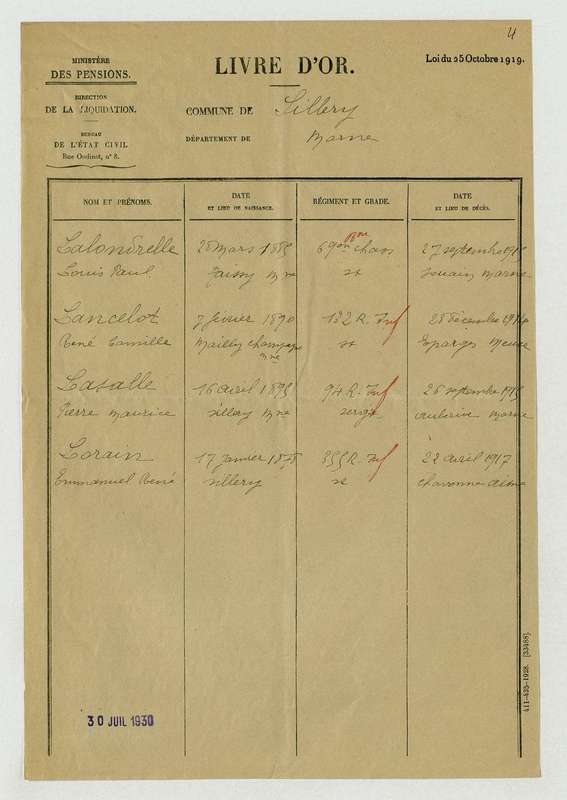 4
MINISTÈRE
DES PENSIONS.
DIRECTION
DE LA LIQUIDATION.
BUREAU
DE L'ÉTAT CIVIL
Rue Oudinot, n° 8.
LIVRE D'OR.
Loi du 25 Octobre 1919.
COMMUNE DE Sillery
DÉPARTEMENT DE Marne
NOM ET PRÉNOMS.
DATE
ET LIEU DE NAISSANCE.
RÉGIMENT ET GRADE.
DATE
ET LIEU DE DÉCÈS.
Lalondrelle 28 mars 1885 69 Bon chass 27 septembre 1915
Louis Paul Mne Souain Marne
Lancelot 7 février 1890 132 R. Inf 28 décembre
René Camille Mailly Champagne Eparges Meuse
Mne
Lasalle 16 avril 1895 94 R. Inf 26 septembre 1915
Pierre Maurice sillery Mne serge Auberive Marne
Lorain 17 janvier 1878 355 R. Inf 22 avril 1917
Emmanuel René sillery Chavonne Aisne
30 JUIL 1930
411-435-1928. [33488].